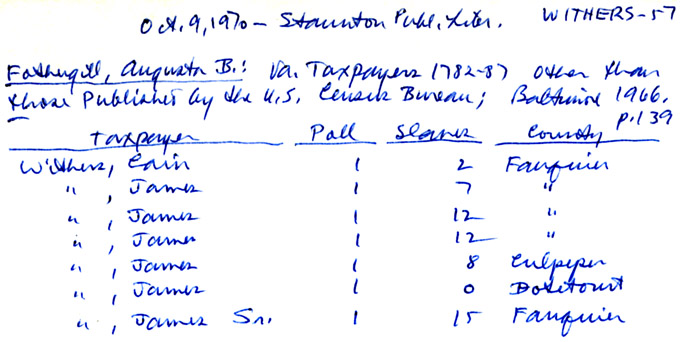 Oct. 9, 1970 - Staunton Publ. Liber. WITHERS-57
Fothergill, Augusta B.: Va. Taxpayers 1782-87 other than
those Published by the U.S. Census Bureau; Baltimore 1966.
p. 139
Taxpayer Poll Slaves County
Withers, Cain 1 2 Fauquier
" , James 1 7 "
" , James 1 12 "
" , James 1 12 "
" , James 1 8 Culpeper
" , James 1 0 Botetourt
" , James Sr. 1 15 Fauquier